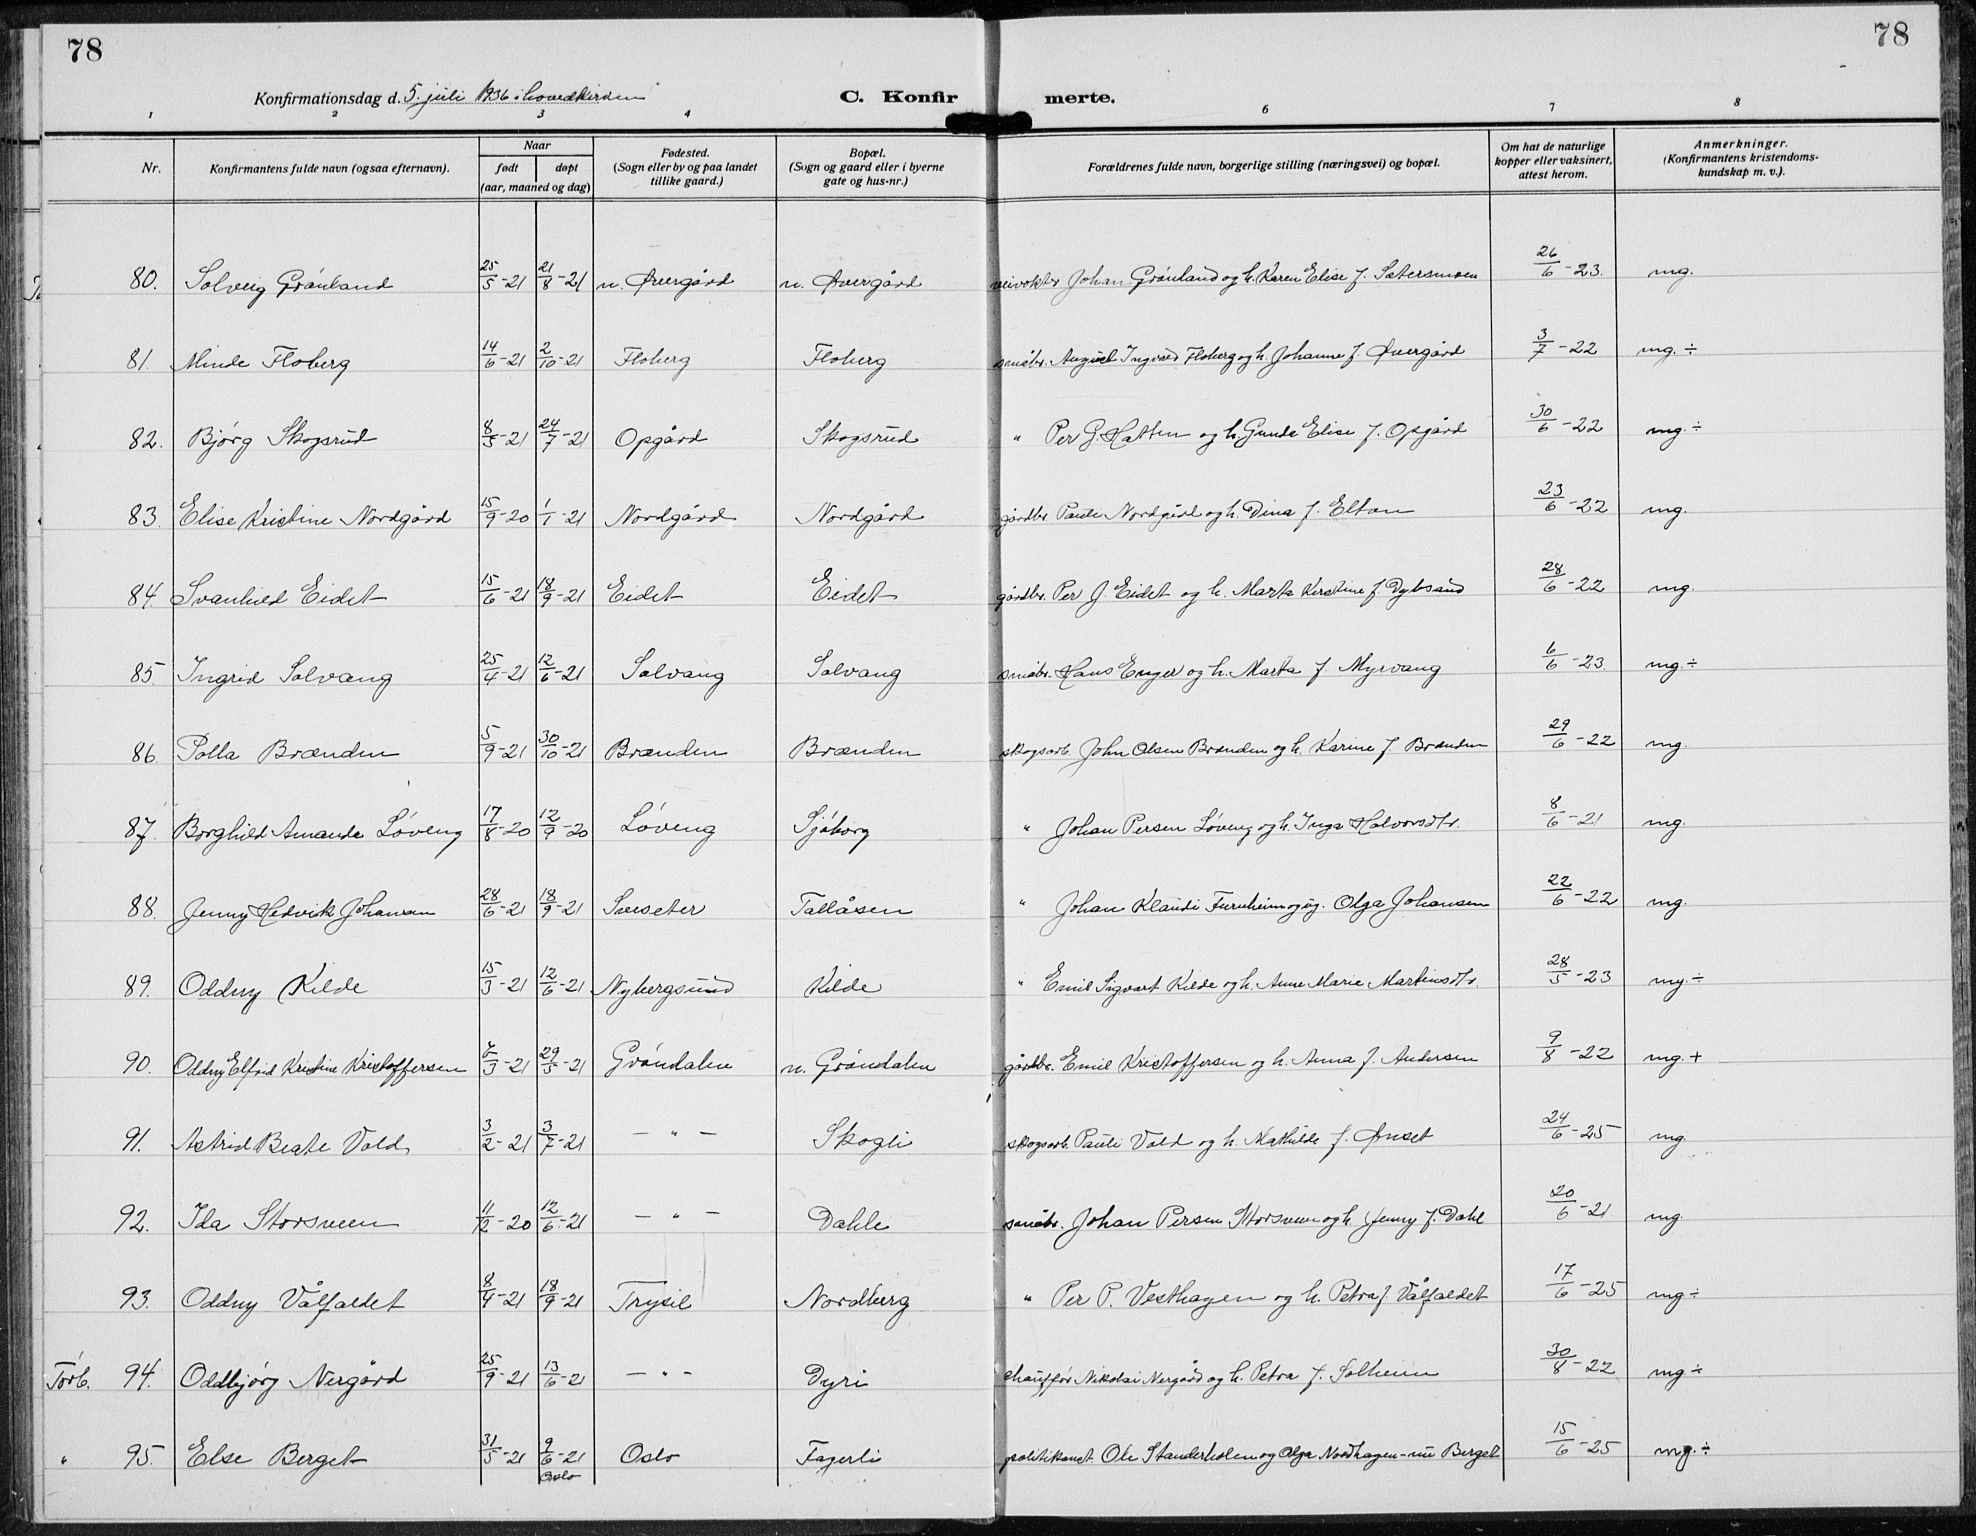 78
78
Konfirmationsdag d. 5. juli 1936 i hovedkirken
C. Konfir merte.
1 2 3 4 6 7 8
Nr.
Konfirmantens fulde navn (ogsaa efternavn).
Naar
født døpt
(aar, maaned og dag)
Fødested.
(Sogn eller by og paa landet
tillike gaard.)
Bopæl.
(Sogn og gaard eller i byerne
gate og hus-nr.)
Forældrenes fulde navn, borgerlige stilling (næringsvei) og bopæl.
Om hat de naturlige
kopper eller vaksinert,
attest herom.
Anmerkninger.
(Konfirmantens kristendoms-
kundskap m. v.).
80. Solveig Grönland 25/5-21 21/8-21 n. Øvergård n. Øvergård veivokter Johan Grönland og h. Karen Elise f. Sætersmoen 26/6-23 mg.
81. Minde Floberg 14/6-21 2/10-21 Floberg Floberg småbr. August Ingvald Floberg og h. Johanne f. Øvergård 3/7-22 mg. ÷
82. Bjørg Skogsrud 8/5-21 24/7-21 Opgård Skogsrud " Per G. Hatten og h. Gunda Elise f. Opgård 30/6-22 mg. ÷
83. Elise Kristine Nordgård 15/9-20 1/1-21 Nordgård Nordgård gårdbr. Pauli Nordgård og h. Dina f. Eltan 23/6-22 mg.
84. Svanhild Eidet 15/6-21 18/9-21 Eidet Eidet gårdbr. Per J. Eidet og h. Marta Kirstine f. Dybsand 28/6-22 mg.
85 Ingrid Solvang 25/4-21 12/6-21 Solvang Solvang småbr. Hans Enger og h. Marta f. Myrvang 6/6-23 mg. ÷
86 Polla Brænden 5/9-21 30/10-21 Brænden Brænden skogsarb. John Olsen Brænden og h. Karine f. Brænden 29/6-22 mg.
87. Borghild Amanda Löveng 17/8-20 12/9-20 Löveng Sjöborg " Johan Persen Löveng og h. Inga Halvorsdtr. 8/6-21 mg.
88. Jenny Hedvik Johansen 28/6-21 18/9-21 Sæseter Tallåsen " Johan Klaudi Furuheim og ug. Olga Johansen 22/6-22 mg.
89. Oddny Kilde 15/3-21 12/6-21 Nybergsund Kilde " Emil Sigvart Kilde og h. Anne Marie Martinsdtr. 28/5-23 mg. ÷
90. Oddny Elfrid Kristine Kristoffersen 6/3-21 29/5-21 Gröndalen n. Gröndalen gårdbr. Emil Kristoffersen og h. Anna f. Andersen 9/8-22 mg. +
91. Astrid Beate Vold 3/2-21 3/7-21 — " — Skogli skogsarb. Pauli Vold og h. Mathilde f. Ønset 24/6-25 mg.
92. Ida Storsveen 11/12-20 12/6-21 — " — Dahle småbr. Johan Persen Storsveen og h. Jenny f. Dahl 20/6-21 mg.
93. Oddny Vålfaldet 8/4-21 18/9-21 Trysil Nordberg " Per P. Vesthagen og h. Petra f. Vålfaldet 17/6-25 mg ÷
Törb. 94. Oddbjörg Nergård 25/9-21 13/6-21 — " — Dyri chauffør Nikolai Nergård og h. Petra f. Solheim 30/8-22 mg ÷
" 95. Else Berget 31/5-21 9/6-21 Oslo Oslo Fagerli politikonst. Ole Standerholen og Olga Nordhagen - nu Berget 15/6-25 mg. ÷